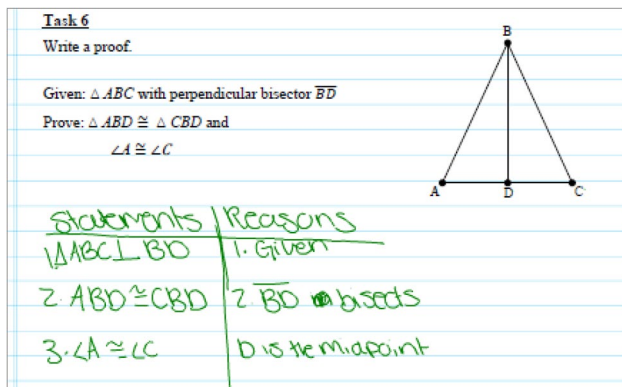 Task 6
Write a proof.
B
Given: △ ABC with perpendicular bisector B̅D̅
Prove: △ ABD ≅ △ CBD and
∠A ≅ ∠C
A D C
Statements Reasons
1. △ABC ⊥ BD 1. Given
2. ABD ≅ CBD 2. B̅D̅ bisects
3. ∠A ≅ ∠C D is the midpoint